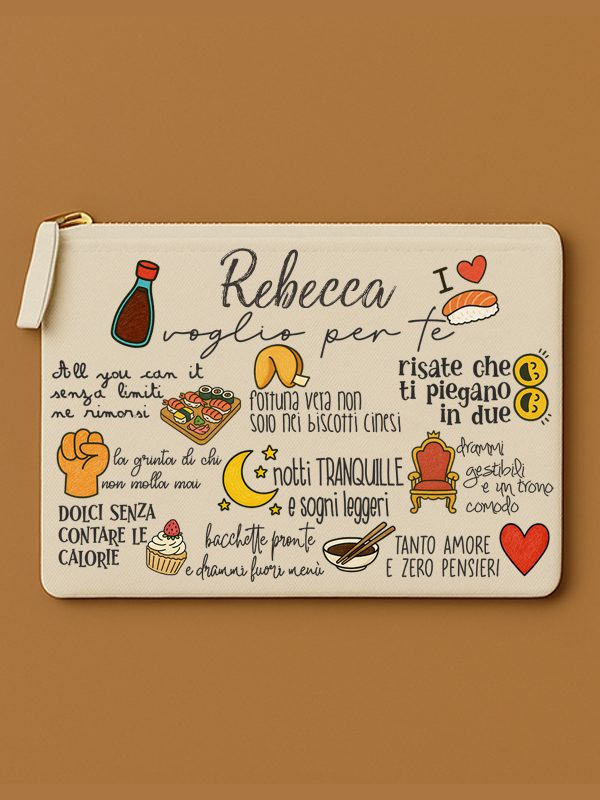 Rebecca
voglio per te
I
All you can it
senza limiti
ne rimorsi
fortuna vera non
solo nei biscotti cinesi
risate che
ti piegano
in due
la grinta di chi
non molla mai
notti TRANQUILLE
e sogni leggeri
drammi
gestibili
e un trono
comodo
DOLCI SENZA
CONTARE LE
CALORIE
bacchette pronte
e drammi fuori menù
TANTO AMORE
E ZERO PENSIERI